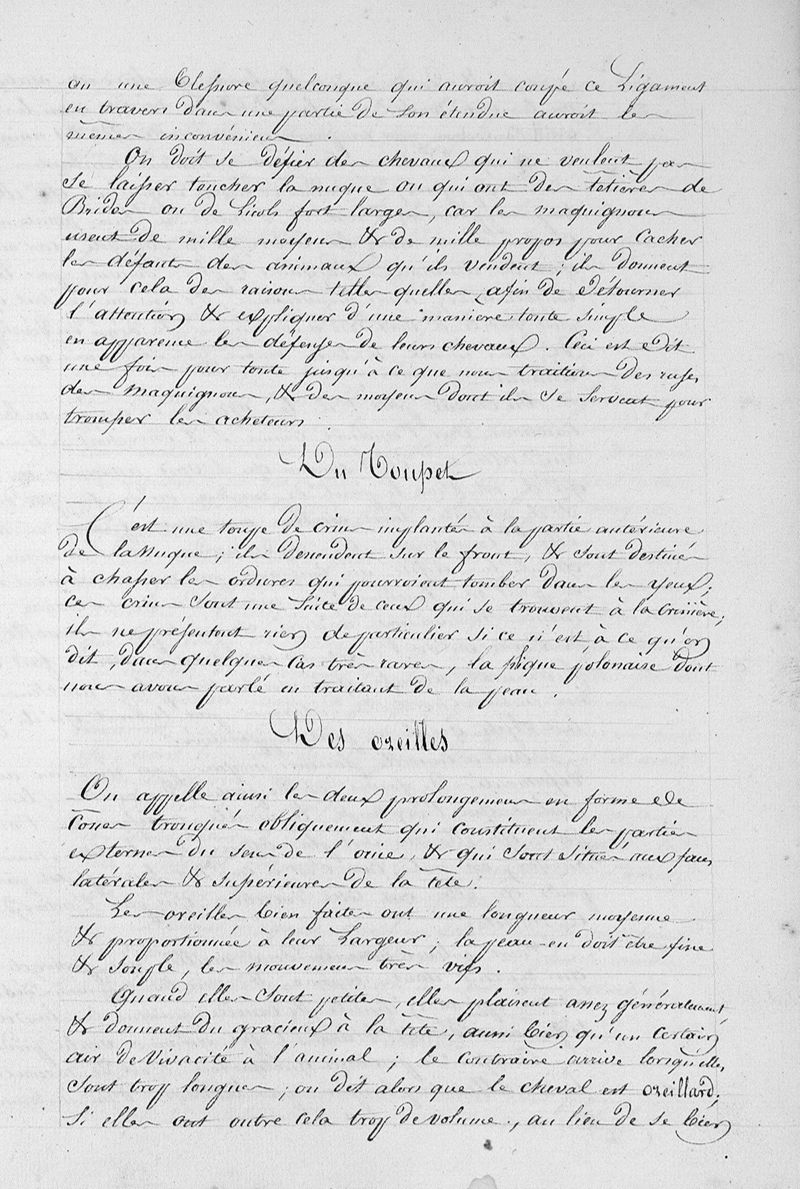 ou une blessure quelconque qui auroit coupé ce Ligament
en travers dans une partie de son étendue auroit les
mêmes inconvéniens.
On doit se défier des chevaux qui ne veulent pas
se laisser toucher la nuque ou qui ont des têtieres de
Brides ou de Licols fort larges, car les maquignons
usent de mille moyens & de mille propos pour cacher
les défauts des animaux qu'ils vendent; ils donnent
pour cela des raisons telles quelles afin de détourner
l'attention & expliquer d'une maniere toute simple
en apparence les défenses de leurs chevaux. Ceci est dit
une fois pour toute jusqu'à ce que nous traitions des ruses
des maquignons, & des moyens dont ils se servent pour
tromper les acheteurs.
Du Toupet
C'est une toupe de crins implantés à la partie antérieure
de la Nuque; ils descendent sur le front, & sont destinés
à chasser les ordures qui pourroient tomber dans les yeux;
ces crins sont une suite de ceux qui se trouvent à la crinière;
ils ne présentent rien de particulier si ce n'est, à ce qu'on
dit, dans quelques cas très rares, la plique polonaise dont
nous avons parlé en traitant de la peau.
Des oreilles
On appelle ainsi les deux prolongemens en forme de
cones tronqués obliquement qui constituent les parties
externes du sens de l'ouie, & qui sont situés aux faces
latérales & supérieures de la tête.
Les oreilles bien faites ont une longueur moyenne
& proportionnée à leur largeur; la peau en doit être fine
& souple, les mouvemens très vifs.
Quand elles sont petites, elles plaisent assez généralement
& donnent du gracieux à la tête, aussi bien qu'un certain
air de vivacité à l'animal; le contraire arrive lorsqu'elles
sont trop longues; on dit alors que le cheval est oreillard;
si elles ont outre cela trop de volume, au lieu de se bien